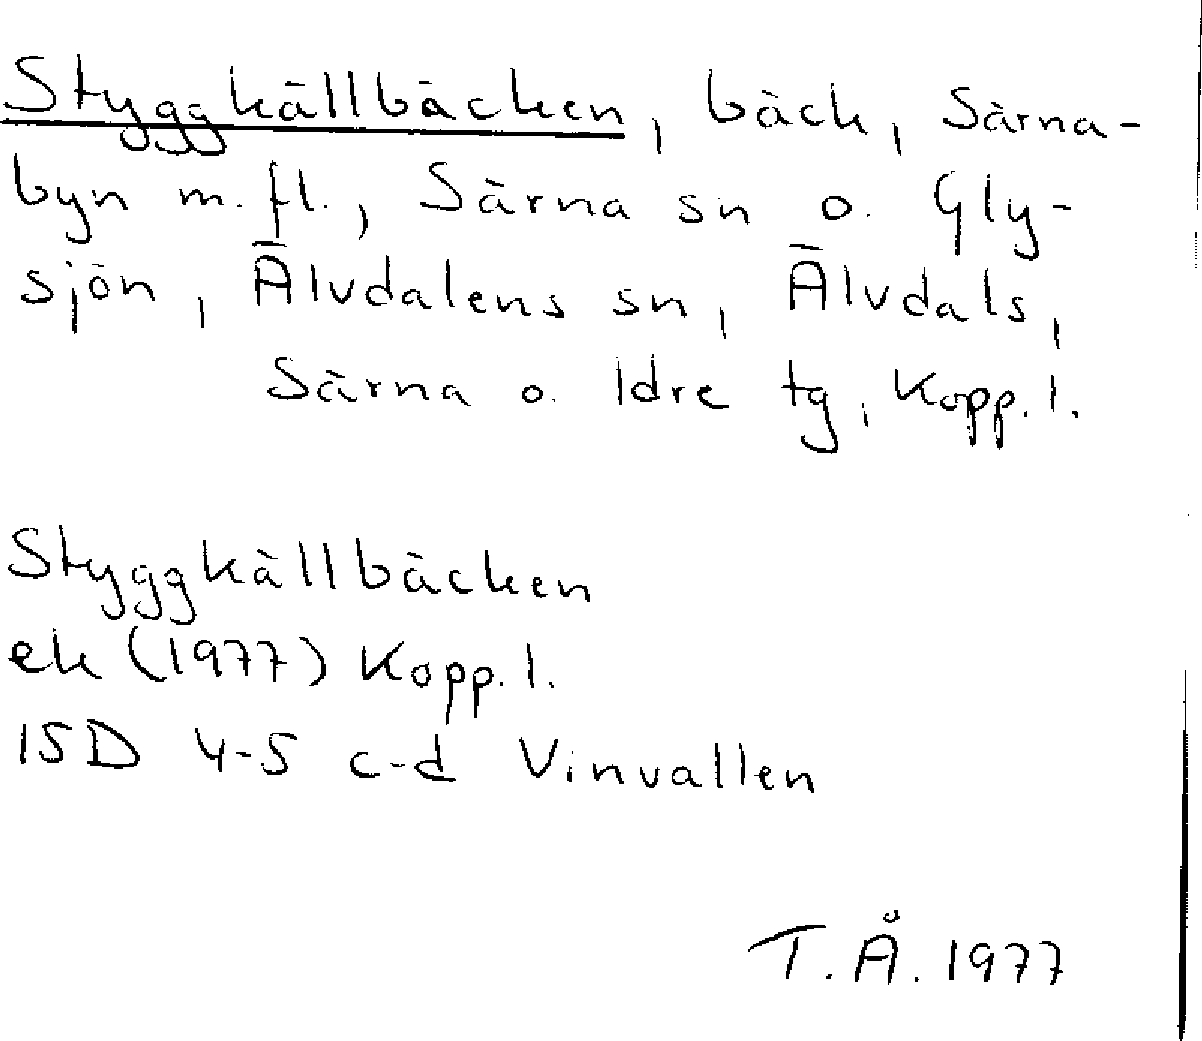 Styggkällbäcken, bäck, Särna-
byn m. fl., Särna sn o. Gly-
sjön, Älvdalens sn, Älvdals,
Särna o. Idre tg, Kopp. l.
Styggkällbäcken
ek (1977) Kopp. l.
15D 4-5 c-d Vinvallen
T. Å. 1977